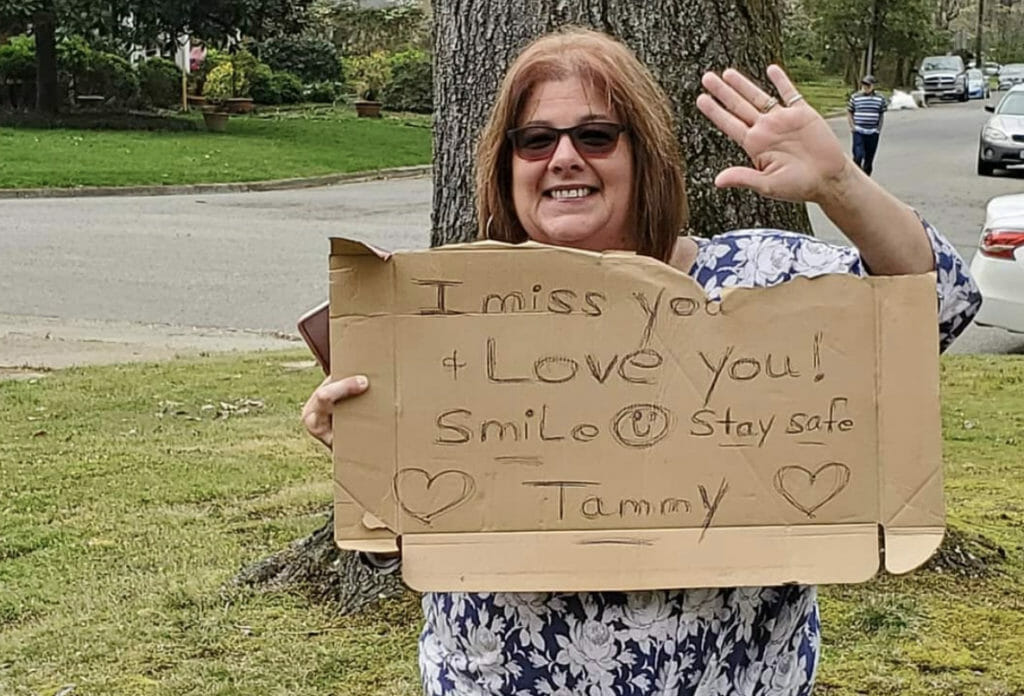 I miss you
+ Love you!
Smile stay safe
Tammy